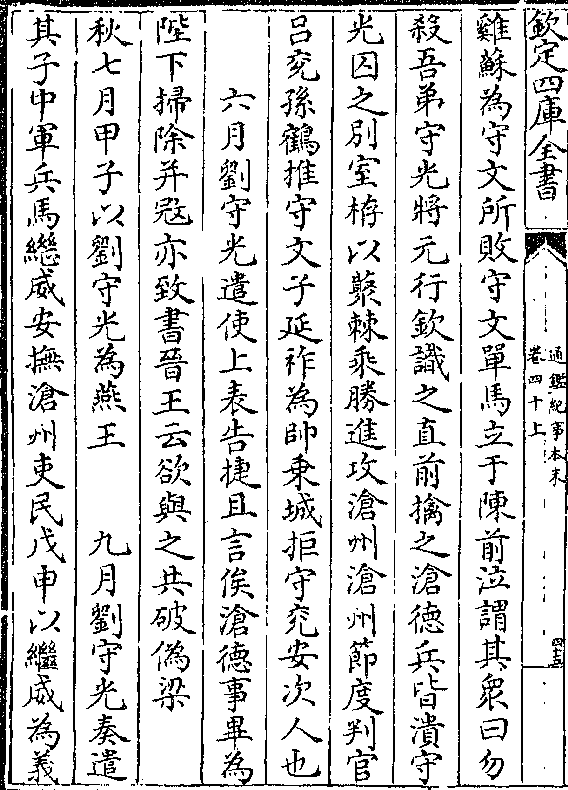 欽定四庫全書
通鑑紀事本末
卷四十上
雞蘇為守文所敗守文單馬立于陳前泣謂其衆曰勿
殺吾弟守光將元行欽識之直前擒之滄德兵皆潰守
光囚之别室栫以藂棘乘勝進攻滄州滄州節度判官
呂兖孫鶴推守文子延祚為帥乗城拒守兖安次人也
六月劉守光遣使上表告捷且言俟滄德事畢為
陛下掃除并冦亦致書晉王云欲與之共破偽梁
秋七月甲子以劉守光為燕王　九月劉守光奏遣
其子中軍兵馬繼威安撫滄州吏民戊申以繼威為義